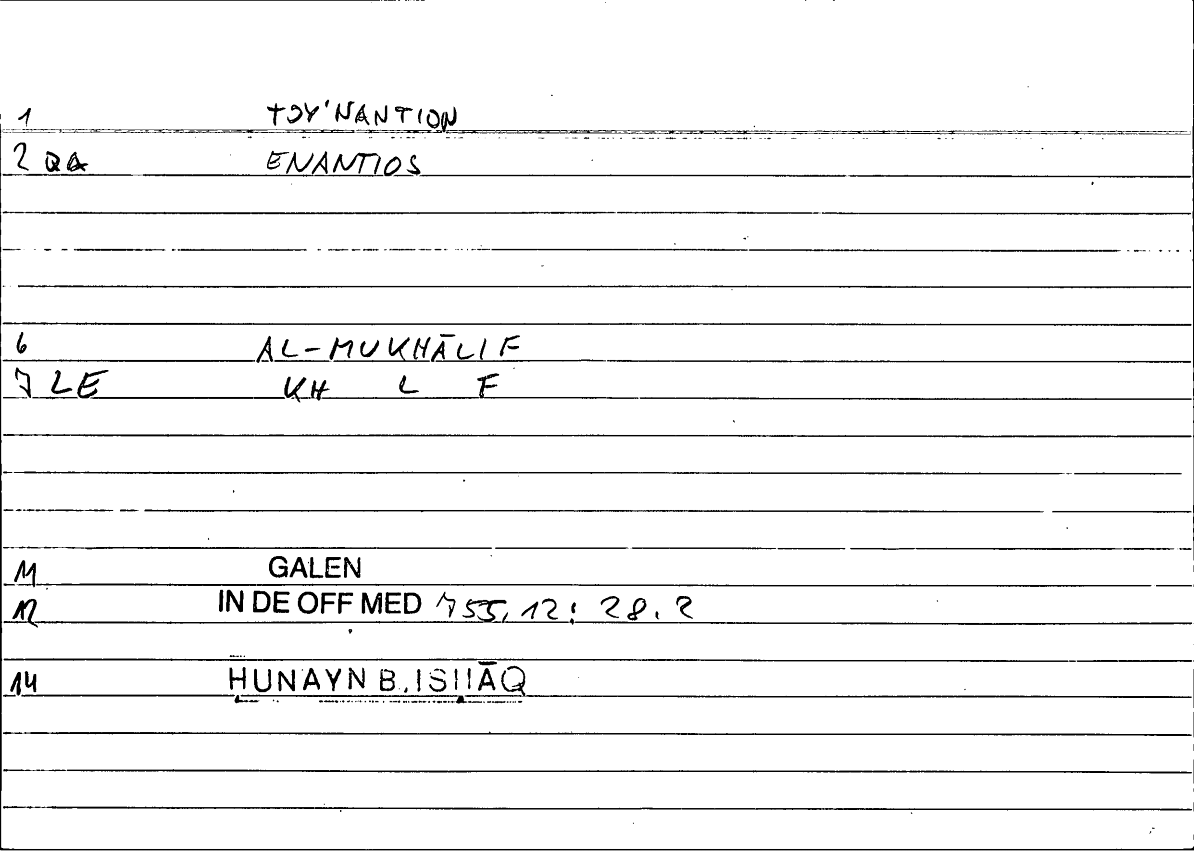 1 TOY'NANTION
2 QA ENANTIOS
6 AL-MUKHĀLIF
7 LE KH L F
11 GALEN
12 IN DE OFF MED 755,12: 28.2
14 ḤUNAYN B. ISḤĀQ